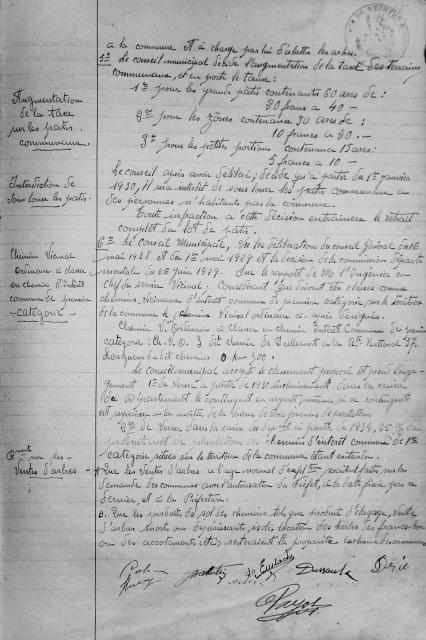 a la commune et à charge par lui d'abattre les arbres.
5º Le conseil municipal décide l'augmentation de la taxe des terrains
communaux, et en porte le taux :
Augmentation
de la taxe
sur les patis
communaux.
1º pour les grands patis contenants 60 ares de :
20 francs a 40 -
2º pour les 2èmes contenance 30 ares de :
10 francs a 20. -
3º pour les petites portions contenance 15 ares :
5 francs a 10 -
Interdiction de
sous louer les patis.
Le conseil après avoir délibéré, décide qu'a partir du 1er janvier
1930, il sera interdit de sous louer les patis communaux a
des personnes n'habitants pas la commune.
Toute infraction a cette décision entrainera le retrait
complet du lot de patis.
Chemin Vicinal
Ordinaire a classer
en chemin d'intérêt
commun de première
catégorie -
6º Le Conseil Municipal, Vu les délibérations du conseil général du 16
mai 1928 et du 1er mai 1929 et la décision de la commission départe
mental du 26 juin 1929. Sur le rapport de Mr l'Ingénieur en
chef du service Vicinal; Considérant que doivent être classés comme
chemins vicinaux d'intérêt commun de première catégorie sur le territoire
de la commune le chemin Vicinal ordinaire ci après désignés.
Chemin V. Ordinaire a Classer en chemin Intérêt Commun de première
catégorie : Ch. V. O. 3 dit chemin de
a la Rte National
Longueur du dit chemin 0 km 900.
Le conseil municipal accepte le classement proposé et prend l'enga-
gement 1º de Verser a partir de 1930 inclusivement dans la caisse
du Département le contingent en argent, même si ce contingent
est supérieur a la moitié de la valeur de trois journées de prestations
2º de Verser dans la caisse du départ a partir de 1934, 25 % du
produit net de
des chemins d'intérêt commun de 1re
catégorie situés sur le territoire de la commune étant entendu.
sur les
Ventes d'arbres.
Que les Ventes d'arbres a l'age normal d'exploitation seraient faites, sur la
demande des communes avec l'autorisation du Préfet, à la date fixée par ce
dernier, et à la Préfecture.
B. Que les produits du sol des chemins tels que produit d'élagage, vente
d'arbres morts ou dépérissants, de location des herbes des francs-bords
ou des accotements (etc) resteraient la propriété exclusive des communes
Dussault
Payot